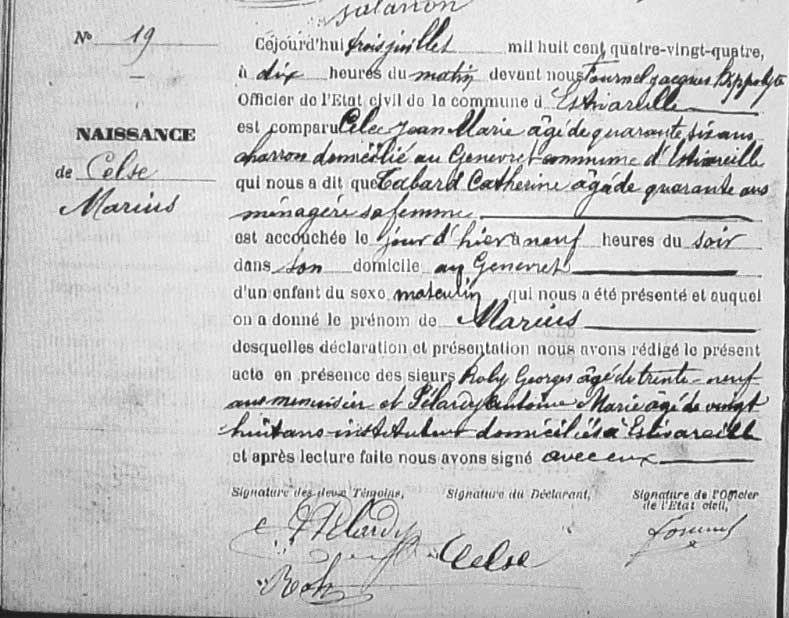 Nº 19
NAISSANCE
de Celse
Marius
Cejourd'hui trois juillet mil huit cent quatre-vingt-quatre,
à dix heures du matin devant nous Fournel Jacques Hippolyte
Officier de l'Etat civil de la commune d'Estivareille
est comparu Celse Jean Marie âgé de quarante six ans
charron domicilié au Genevret commune d'Estivareille
qui nous a dit que Tabard Catherine âgé de quarante ans
ménagère sa femme
est accouchée le jour d'hier à neuf heures du soir
dans son domicile au Genevret
d'un enfant du sexe masculin qui nous a été présenté et auquel
on a donné le prénom de Marius
desquelles déclaration et présentation nous avons rédigé le présent
acte en présence des sieurs Roby Georges âgé de trente-neuf
ans menuisier et Pélardy Antoine Marie âgé de vingt
huit ans instituteur domiciliés à Estivareille
et après lecture faite nous avons signé avec eux
Signature des deux Témoins, Signature du Déclarant, Signature de l'Officier
de l'Etat civil,
Pélardy Celse Fournel
Roby